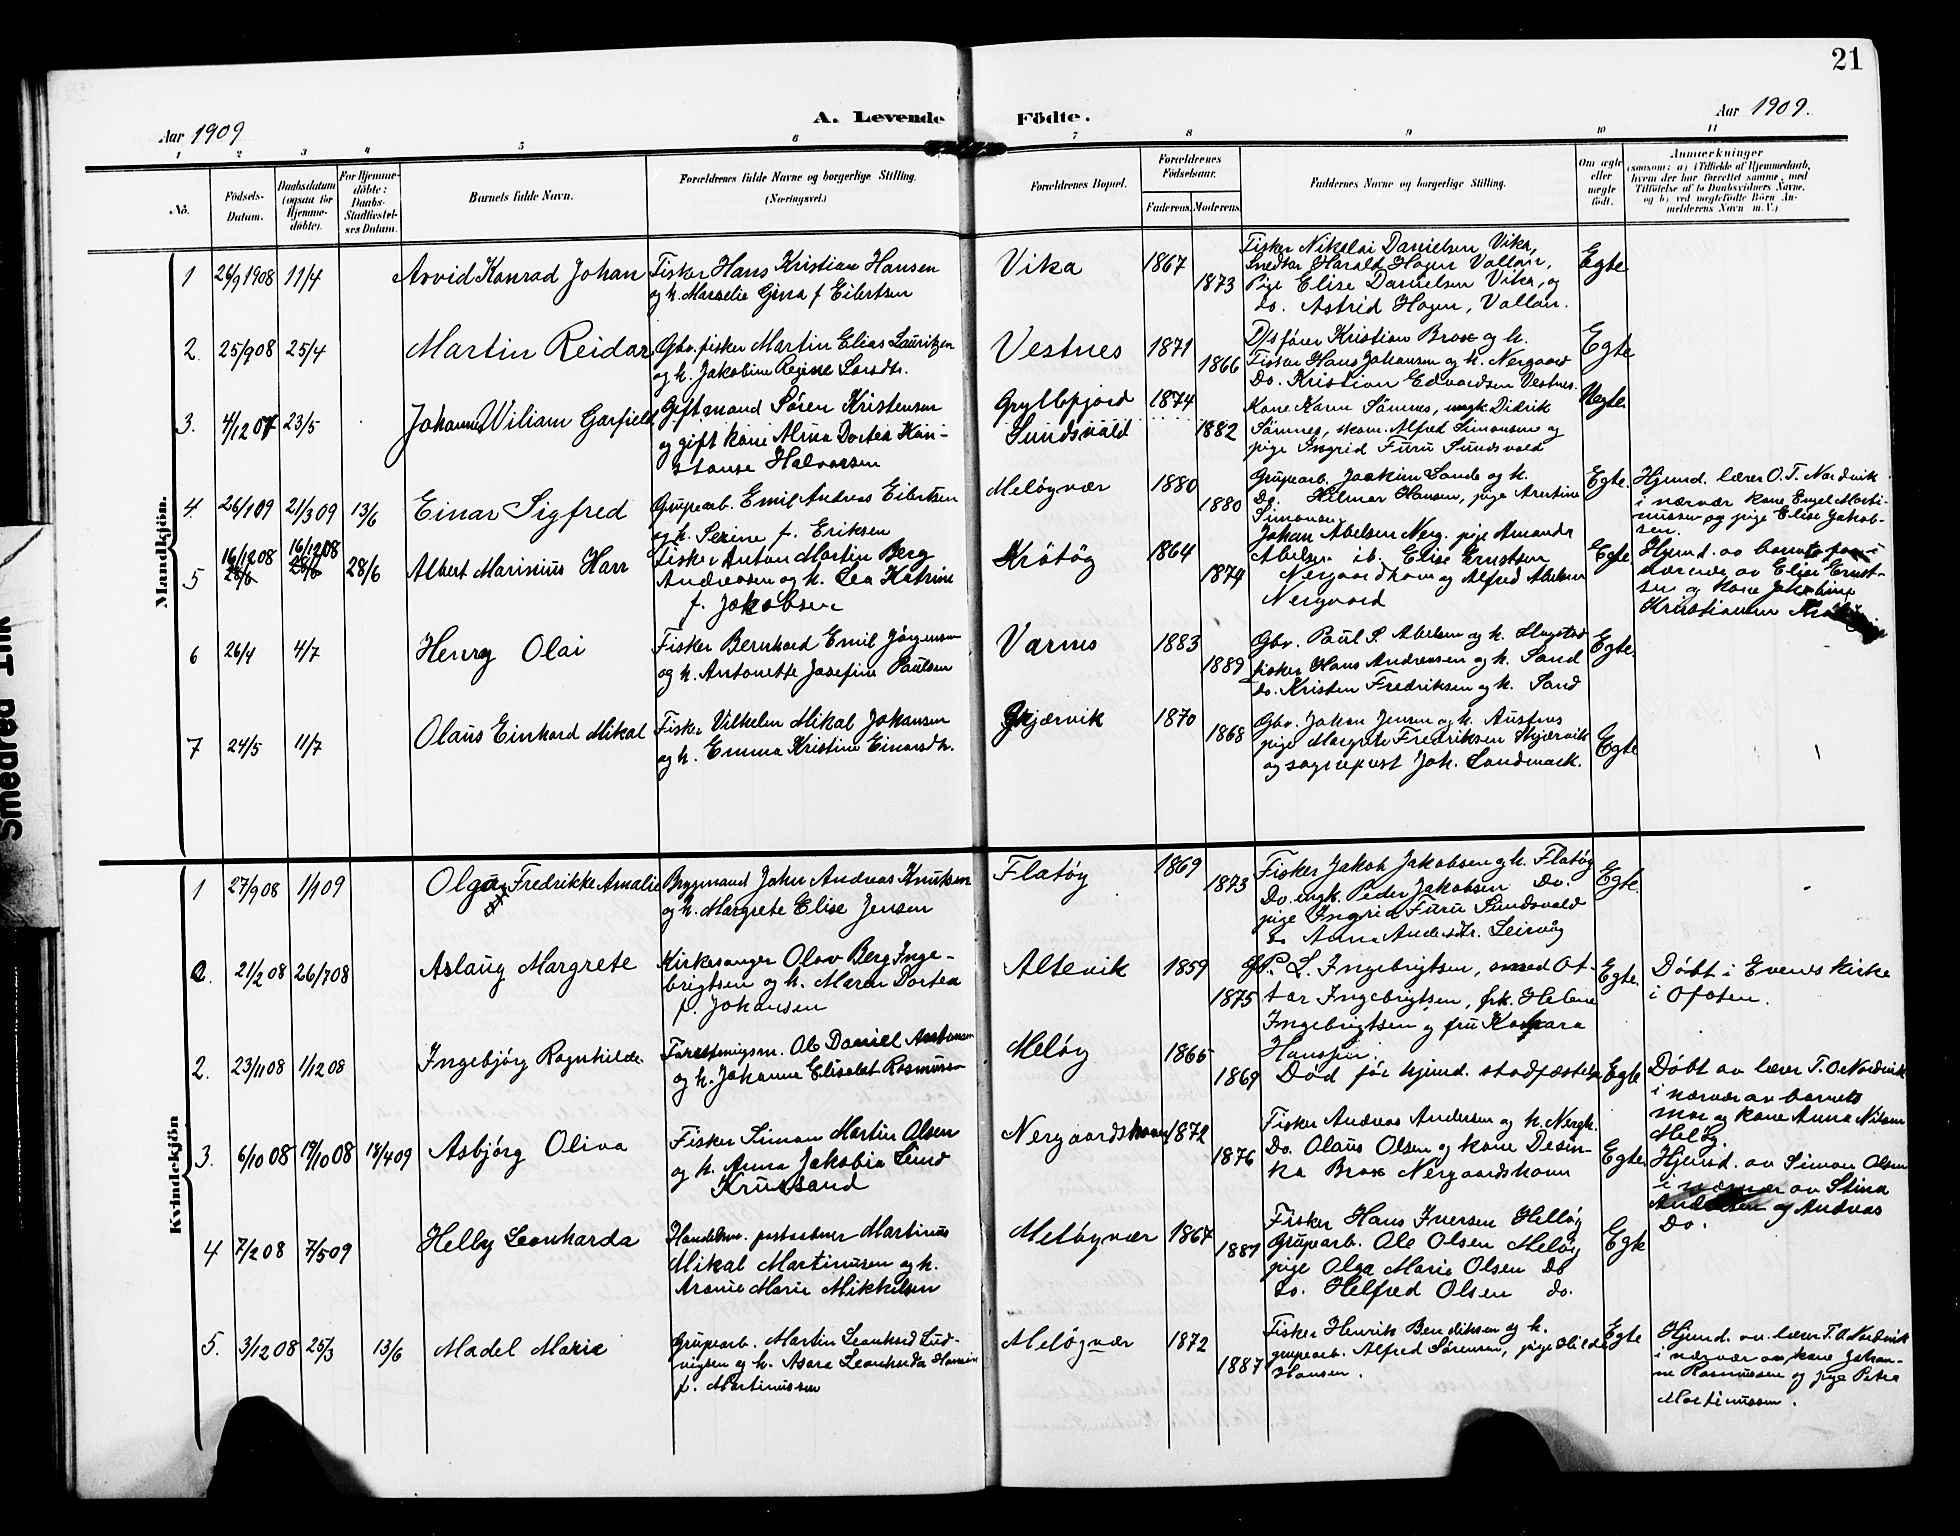 21
Aar 1909
A. Levende Födte.
Aar 1909.
1 2 3 4 5 6 7 8 9 10 11
No.
Födsels-
Datum.
Daabsdatum
(ogsaa for
Hjemme-
döbte).
For Hjemme-
döbte:
Daabs-
Stadfæstel-
ses Datum.
Barnets fulde Navn.
Forældrenes fulde Navne og borgerlige Stilling.
(Næringsvei.)
Forældrenes Bopæl.
Forældrenes
Födselsaar.
Faderens. Moderens.
Faddernes Navne og borgerlige Stilling.
Om ægte
eller
uægte
födt.
Anmærkninger
(saasom: a) i Tilfælde af Hjemmedaab,
hvem der har forrettet samme, med
Tilföielse af to Daabsvidners Navne,
og b) ved uegtefödte Börn An-
melderens Navn m. V.)
Mandkjön.
1 26/9 1908 11/4 Arvid Konrad Johan
Fisker Hans Kristian Hansen
og h. Marselie Gina f Eilertsen
Vika 1867 1873
Fisker Nikolai Danielsen Vika,
Snedker Harald Hagen Vallan,
Pige Elise Danielsen Vika, og
do. Astrid Hagen, Vallan.
Egte
2. 25/9 08 25/4 Martin Reidar
Gbr. fisker Martin Elias Lauritzen
og h. Jakobine Regine Larsdtr.
Vestnes 1871 1866
Dsfører Kristian Brox og h.
Fisker Hans Johansen og h. Nergaard
Do. Kristian Edvardsen Vestnes.
Egte
3. 4/12 07 23/5 Johannes Wiliam Garfield
Gift mand Søren Kristensen
og gift kone Alma Dortea Kon-
stanse Halvorsen
Gryllefjord
Sundsvald
1874 1882
Kone Karen Sømnes, ungk. Didrik
Sømnes, skom. Alfred Simonsen og
pige Ingrid Furu Sundsvold
Uegte
4. 26/1 09 21/3 09 13/6 Einar Sigfred
Grupearb. Emil Andreas Eilertsen
og h. Serine f. Eriksen
Meløyvær 1880 1880
Grupearb. Joakim Sande og h.
Do. Hilmar Hansen, pige Arntine
Simonsen
Egte
Hjemd. lærer O. T. Nordvik
i nærvær kone Engel Marti-
nussen og pige Elise Jakob-
sen.
5 16/12 08 16/12 08 28/6 Albert Marinius Harr
Fisker Anton Martin Berg
Andreassen og h. Lea Katrine
f. Jakobsen
Krøtøy 1864 1874
Johan Abelsen Nerg. pige Amanda
Abelsen ib. Elise Ernstsen
Nergaardhavn og Alfred Abelsen
Nergaard
Egte
Hjemd. av barnets far i
nærværelse av Elise Ernst-
sen og kone Jakobine
Kristiansen
6 26/4 4/7 Henry Olai
Fisker Bernhard Emil Jørgensen
og h. Antonette Josefine Paulsen
Varnes 1883 1889
Gbr. Paul P. Abelsen og h.
fisker Hans Andreassen og h. Sand
do. Kristen Fredriksen og h. Sand
Egte.
7 24/5 11/7 Olaus Einhard Mikal
Fisker Vilhelm Mikal Johansen
og h. Emma Kristine Einarsdtr.
Skjærvik 1870 1868
Gbr. Johan Jensen og h. Austnes
pige Margrete Fredriksen Skjærvik
og sogneprest Joh. Landmark.
Egte
Kvindekjön
1 27/9 08 1/1 09 Olga Fredrikke Amalie
Brygmand Johan Andreas Knutsen
og h. Margrete Elise Jensen
Flatøy 1869 1873
Fisker Jakob Jakobsen og h. Flatøy
Do. ungk. Peder Jakobsen Do.
pige Ingrid Furu Sundsvald
do Anna Andersdtr. Leirvåg
Egte.
2. 21/2 08 26/7 08 Aslaug Margrete
Kirkesanger Olav Berg Inge-
brigtsen og h. Maren Dortea
f. Johansen
Altevik 1859 1875
P. L. Ingebrigtsen, Ot-
tar Ingebrigtsen, frk. Helene
Ingebrigtsen og fru Kaspara
Hanssen.
Egte
Døbt i Evenes kirke
i Ofoten.
2. 23/11 08 1/12 08 Ingebjørg Ragnhilde
Forretningsm. Ole Daniel
og h. Johanna Elisabet Rasmussen
Meløy 1865 1869
Død før hjemd. stadfæstelse
Egte
Døbt av lærer T. O. Nordvik
i nærvær av barnets
mor og kone Anna Nilsen
Meløy.
3. 6/10 08 19/10 08 18/4 09 Asbjørg Oliva
Fisker Simon Martin Olsen
og h. Anna Jakobia Lund
Krussand
Nergaardshavn 1872 1876
Fisker Andreas Andersen og h. Nergh.
Do. Olaus Olsen og kone Desin-
ka Brox Nergaardshavn
Egte.
Hjemd. av Simon Olsen
i nærvær av Stina
Andersen og Andreas
Do.
4 7/2 08 7/5 09 Helly Leonharda
Handelsm. postaabner Martinus
Mikal Martinusen og h.
Aronie Marie Mikkelsen
Meløyvær 1867 1881
Fisker Hans Iversen Helløy
Grupearb. Ole Olsen Meløy
pige Olga Marie Olsen Do
do. Helfred Olsen do.
Egte
5. 3/12 08 25/3 13/6 Madel Marie
Grupearb. Martin Leonhard Lud-
vigsen og h. Asora Leonharda Hansen
f. Martinussen
Meløyvær 1872 1887
Fisker Henrik Bendiksen og h.
grupearb. Alfred Sørensen, pige Hilda
Hansen.
Egte
Hjemd. av lærer T. O. Nordvik
i nærvær av kone Johan-
ne Rasmussen og pige Petra
Martinussen.
Smedrød